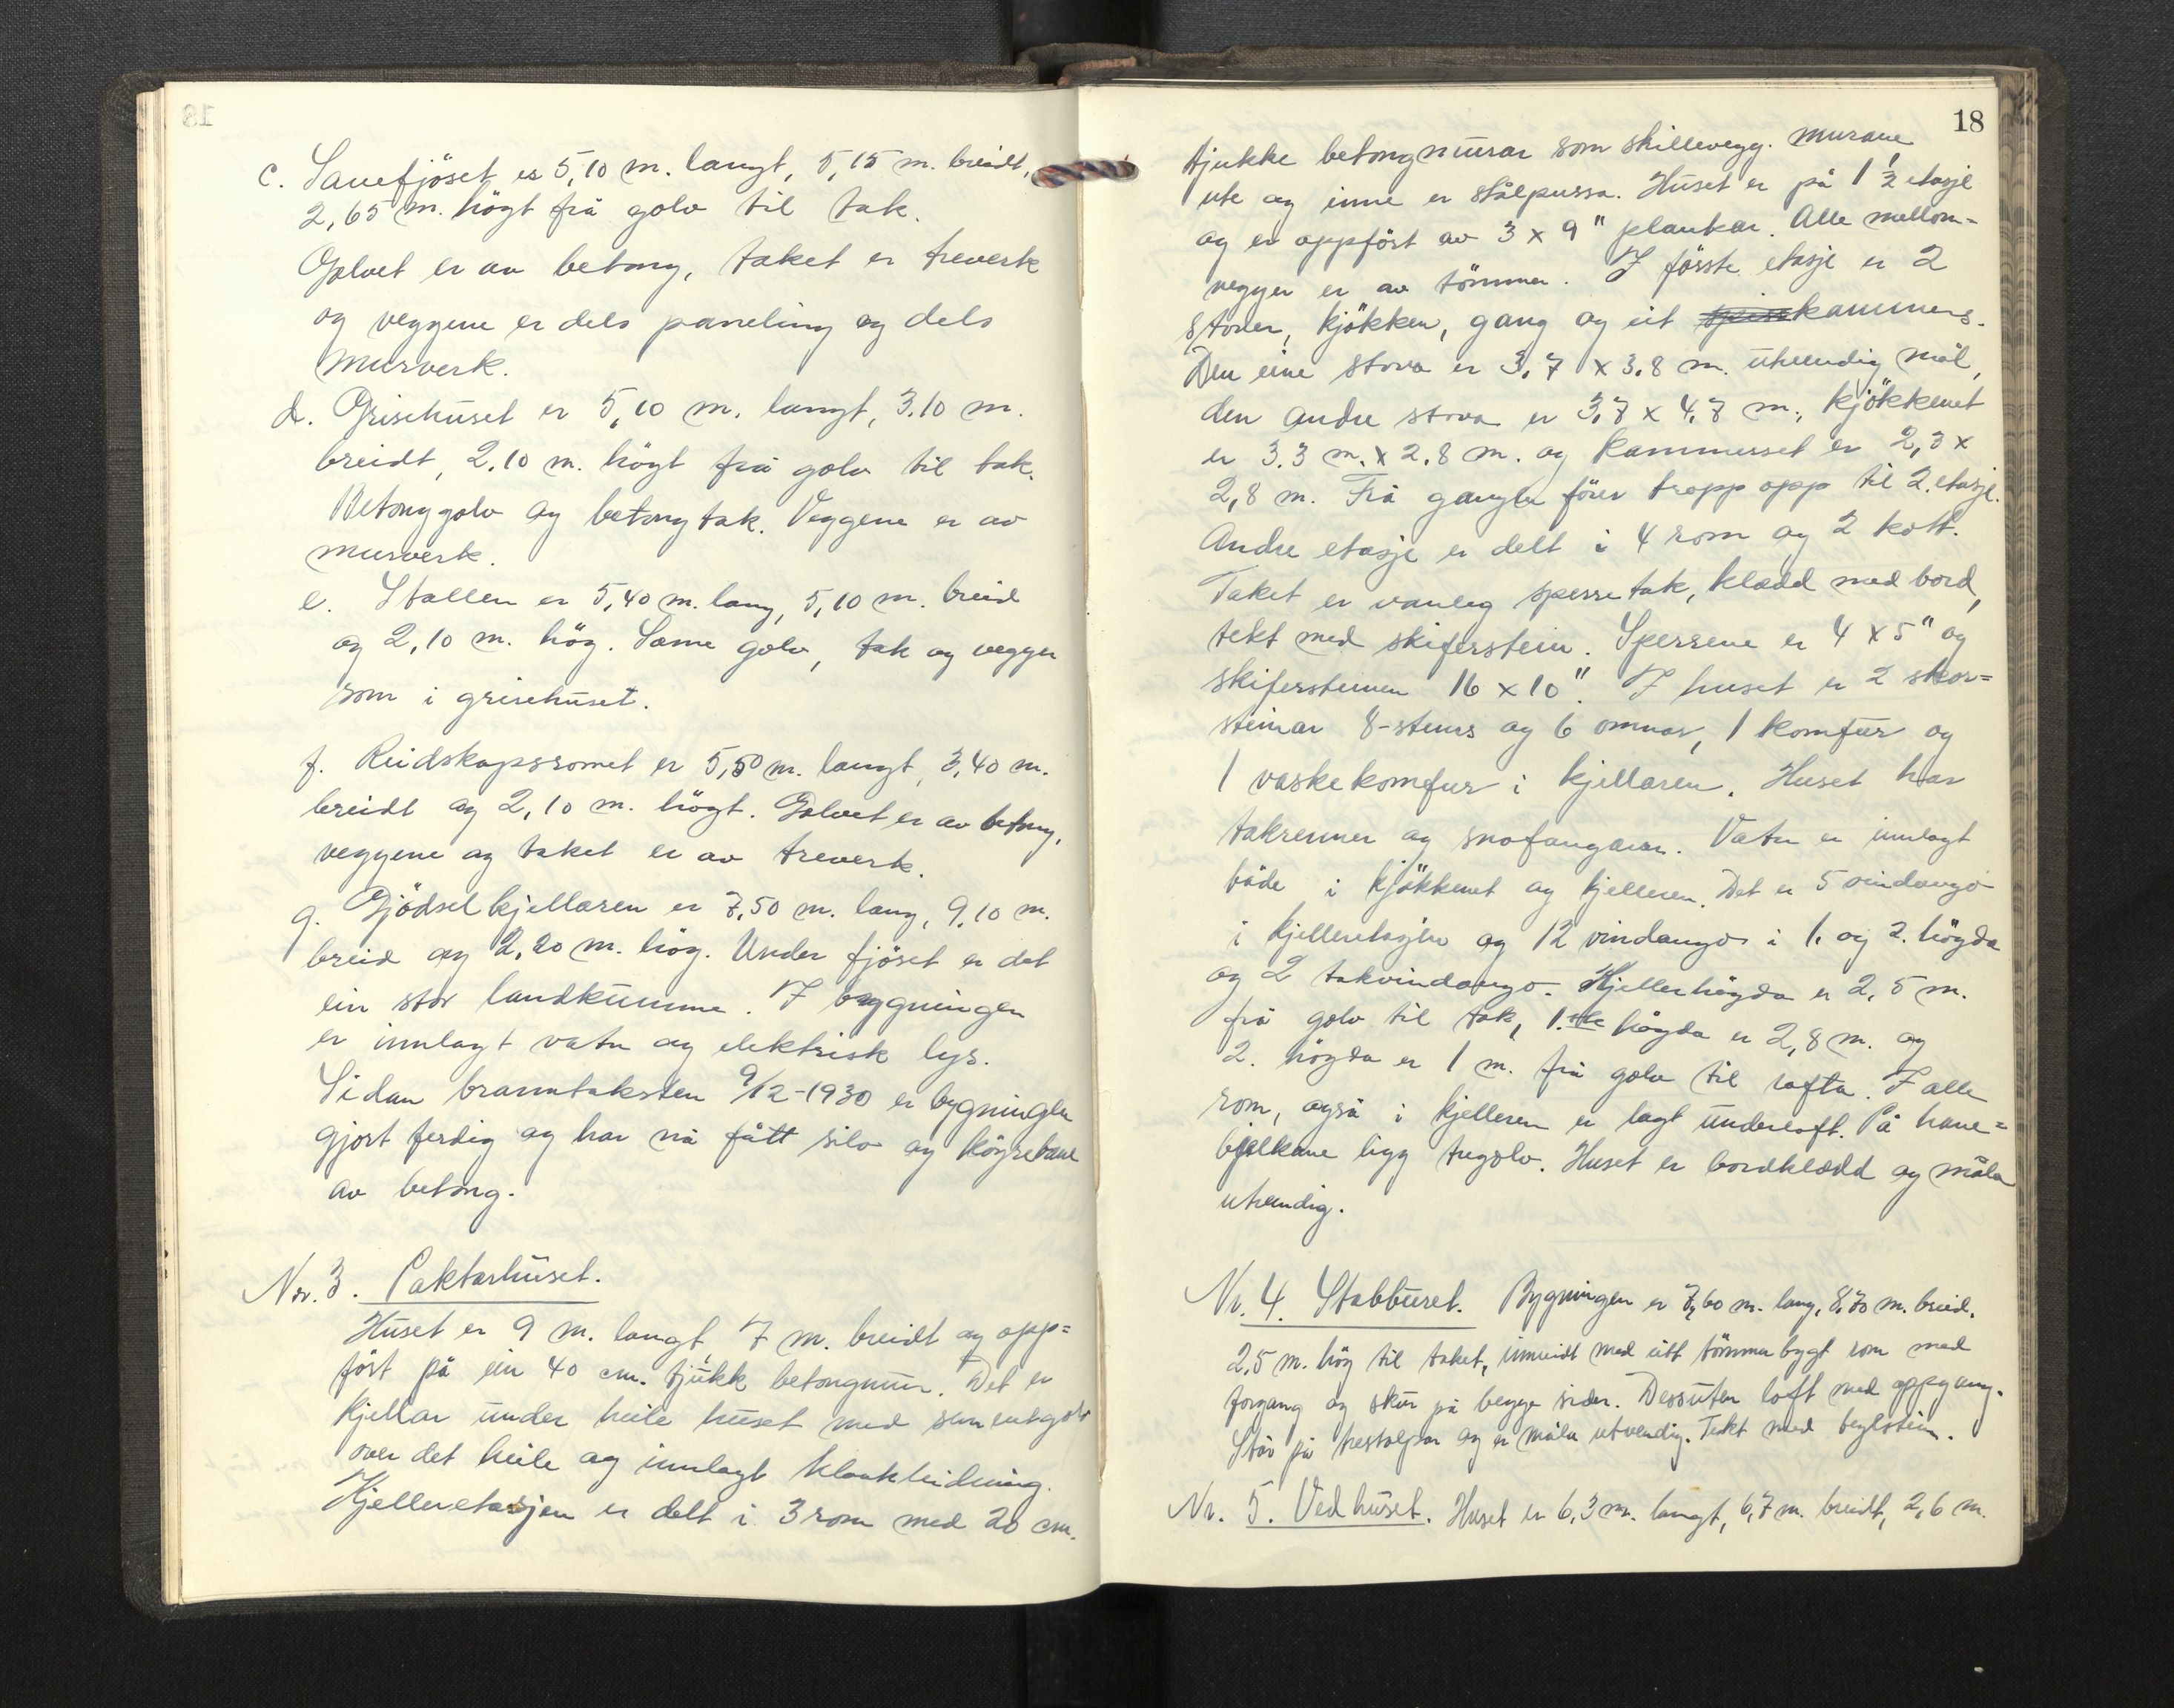 c. Sauefjöset er 5,10 m. langt, 5,15 m. breidt,
2,65 m. högt frå golv til tak.
Golvet er av betong, taket er treverk
og veggene er dels paneling og dels
murverk.
d. Grisehuset er 5,10 m. langt, 3,10 m.
breidt, 2,10 m. högt frå golv til tak.
Betonggolv og betongtak. Veggene er av
murverk.
e. Stallen er 5,40 m. lang, 5,10 m. breid
og 2,10 m. hög. Same golv, tak og vegger
som i grisehuset.
f. Reidskapsromet er 5,50 m. langt, 3,40 m.
breidt og 2,10 m. högt. Golvet er av betong,
veggene og taket er av treverk.
g. Gjödselkjellaren er 7,50 m. lang, 9,10 m.
breid og 2,20 m. hög. Under fjöset er det
ein stor landkumme. I bygningen
er innlagt vatn og elektrisk lys.
Sidan branntaksten 9/12-1930 er bygningen
gjort ferdig og har nå fått silo og köyrebane
av betong.
Nr. 3. Paktarhuset.
Huset er 9 m. langt, 7 m. breidt og opp=
fört på ein 40 cm. tjukk betongmur. Det er
kjellar under heile huset med sementgolv
over det heile og innlagt kloakleidning.
Kjelleretasjen er delt i 3 rom med 20 cm.
18
tjukke betongmurar som skillevegg. Murane
ute og inne er stålpussa. Huset er på 1 1/2 etasje
og er oppfört av 3 x 9" plankar. Alle mellom-
vegger er av tömmer. I förste etasje er 2
stover, kjökken, gang og eit kammers.
Den eine stova er 3,7 x 3,8 m. utvendig mål,
den andre stova er 3,7 x 4,7 m., kjökkenet
er 3,3 m. x 2,8 m. og kammerset er 2,3 x
2,8 m. Frå gangen förer tropp opp til 2. etasje.
Andre etasje er delt i 4 rom og 2 kott.
Taket er vanleg sperretak, kledd med bord,
tekt med skiferstein. Sperrene er 4 x 5" og
skifersteinen 16 x 10". I huset er 2 skor=
steinar 8-steins og 6 omnar, 1 komfur og
1 vaskekomfur i kjellaren. Huset har
takrenner og snofangarar. Vatn er innlagt
både i kjökkenet og kjelleren. Det er 5 vindaugo
i kjelleretasjen og 12 vindaugo i 1. og 2. högda
og 2 takvindaugo. Kjellerhögda er 2,5 m.
frå golv til tak, 1.ste högda er 2,8 m. og
2. högda er 1 m. frå golv til rafta. I alle
rom, også i kjelleren er lagt underloft. På hane=
bjelkane ligg tregolv. Huset er bordkledd og måla
utvendig.
Nr. 4. Stabburet. Bygningen er 7,60 m. lang, 8,70 m. breid.
2,5 m. hög til taket, innreidt med eitt tömmerbygt rom med
forgang og skur på begge sider. Dessuten loft med oppgang.
Står på trestolpar og er måla utvendig. Tekt med teglstein.
Nr. 5. Vedhuset. Huset er 6,3 m. langt, 6,7 m. breidt, 2,6 m.